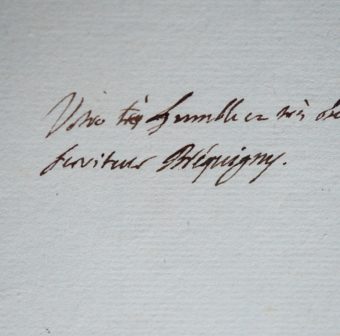 Votre très humble et très obé
serviteur Bréquigny.